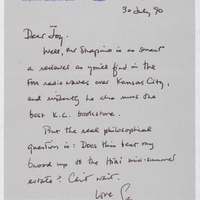 30 July 90
Dear Joy,
Well, Mr Shapiro is as smart
a reviewer as you'll find in the
FM radio waves over Kansas City,
and evidently he also runs the
best K.C. bookstore.
But the real philosophical
question is: Does this bear my
brood up to the Hiki mid-summer
estate? Can't wait.
Love